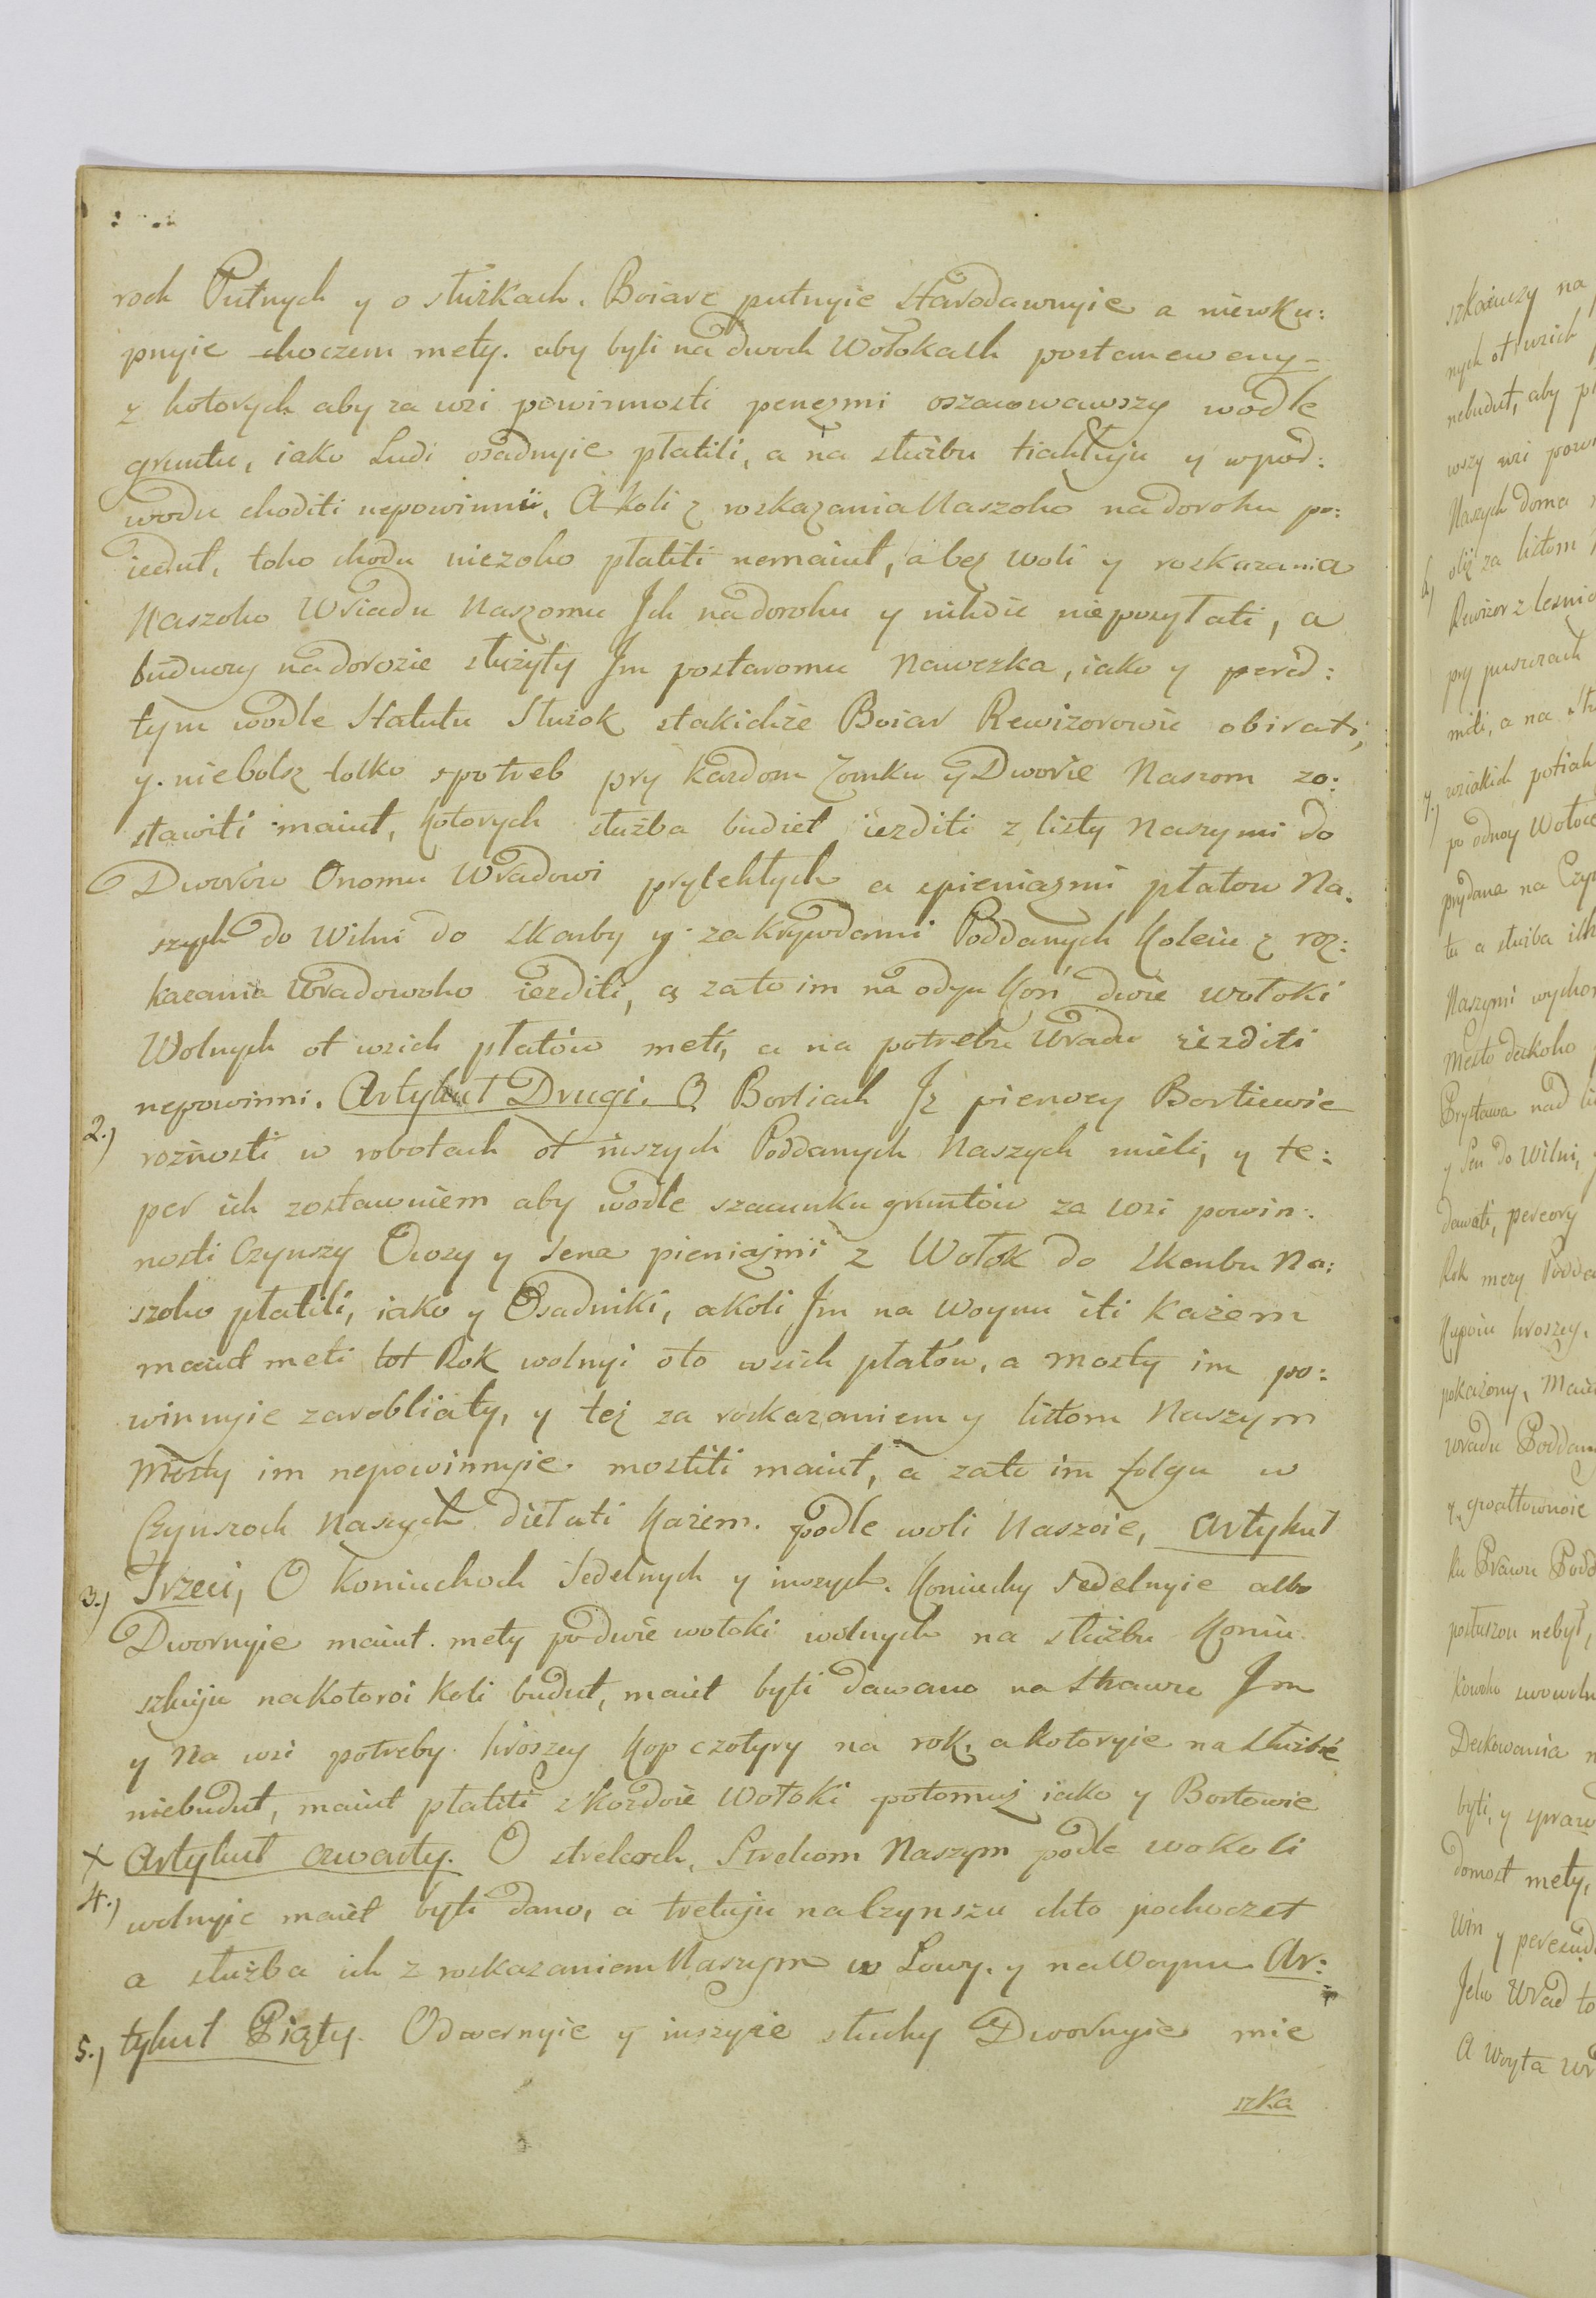 roch Putnych y o służkach. Boiare putnyie starodawnyie a niewku:
pnyie choczem mety. aby byli na dwoch Wołokach postanoweny
z kotorych aby za wsi powinnosti penezmi oszacowawszy wodle
gruntu, iako Ludi osadnyie płatili, a na służbu tiahłuju y wpod:
wodu choditi nepowinni. A koli z roskazania Naszoho na dorohu po:
iedut, toho chodu niczoho płatiti nemaiut, a bez woli y roskazania
Naszoho Wriadu Naszomu Ich na dorohu y nihdie nieposyłati, a
buduczy na dorozie służyty Im postaromu Nawezka, iako y pered:
tym wodle Statutu Służok stakichże Boiar Rewizorowie obirati,
y. niebolsz tolko spotreb pry każdom Zomku y Dworie Naszom zo:
stawiti maiut, kotorych służba budiet iezditi z listy Naszymi do
Dworów Onomu Wradowi prylehłych a spieniazmi płatow Na:
szych do Wilni do Skarby y. zakrywdami Poddanych Koleiu z roz:
kazania Wradowoho iezditi, a zato im na odyn Koń dwie wołoki
Wolnych ot wsich płatów meti, a na potrebu Wradu iezditi
nepowinni. Artykuł Drugi. O Bortiach Iż pierwey Bortiewie
2.) roznosti w robotach ot inszych Poddanych Naszych mieli, y te:
per ich zostawuiem aby wodle szacunku gruntów za wsi powin:
nosti Czynszy Owsy y Sena pieniazmi z Wołok do Skarbu Na:
szoho płatili, iako y Osadniki, a koli Im na Woynu iti każem
maiut meti tot Rok wolnyi oto wsich płatów, a mosty im po:
winnyie zarobliaty, y też za roskazaniem y listom Naszym
Mosty im nepowinnyie mostiti maiut, a zato im folgu w
Czynszoch Naszych diełati Każem. podle woli Naszoie, Artykuł
3.) Trzeci, O Koniuchoch Sedelnych y inszych. Koniuchy Sedelnyie albo
Dwornyie maiut mety po dwie wołoki wolnych na służbu Koniu
szkuju na kotoroi koli budut, maiet byti dawano na Strawu Im
y Na wsi potreby. hroszey kop czotyry na rok, a kotoryie na służbie
niebudut, maiut płatiti zkożdoie Wołoki potomuż iako y Bortowie
X Artykuł czwarty. O strelcoch. Strelcom Naszym podle wokoli
4.) wolnyie maiet byti dano, a tretuju na Czynszu chto pochoczet
a służba ich z roskazaniem Naszym w Łowy. y na Woynu Ar:
5.) tykuł Piąty. Odwernyie y inszyie słuhy Dwornyie mie
szka
szkaiuczy na
nych ot wsich
nebudut, aby
wszy wsi powi
Naszych doma
oliż za listom
Rewizor z lesni
pry puszczach
miti, a na
wsiakich potiah
po odnoy Wołoce
prydana na Czyn
tu a służba ich
Naszymi wycho
Mesto
Prystawa nad
y Sen do Wilni,
dawati,
Rok mezy Podda
hroszey.
pokażony,
wradu Poddan
gwałtownoie
ku Prawu Podd
posłuszon nebył,
swowoln
Deckowania
byti, y spraw
domost mety,
Win y peresud
Jeho Wrad to
A Woyta